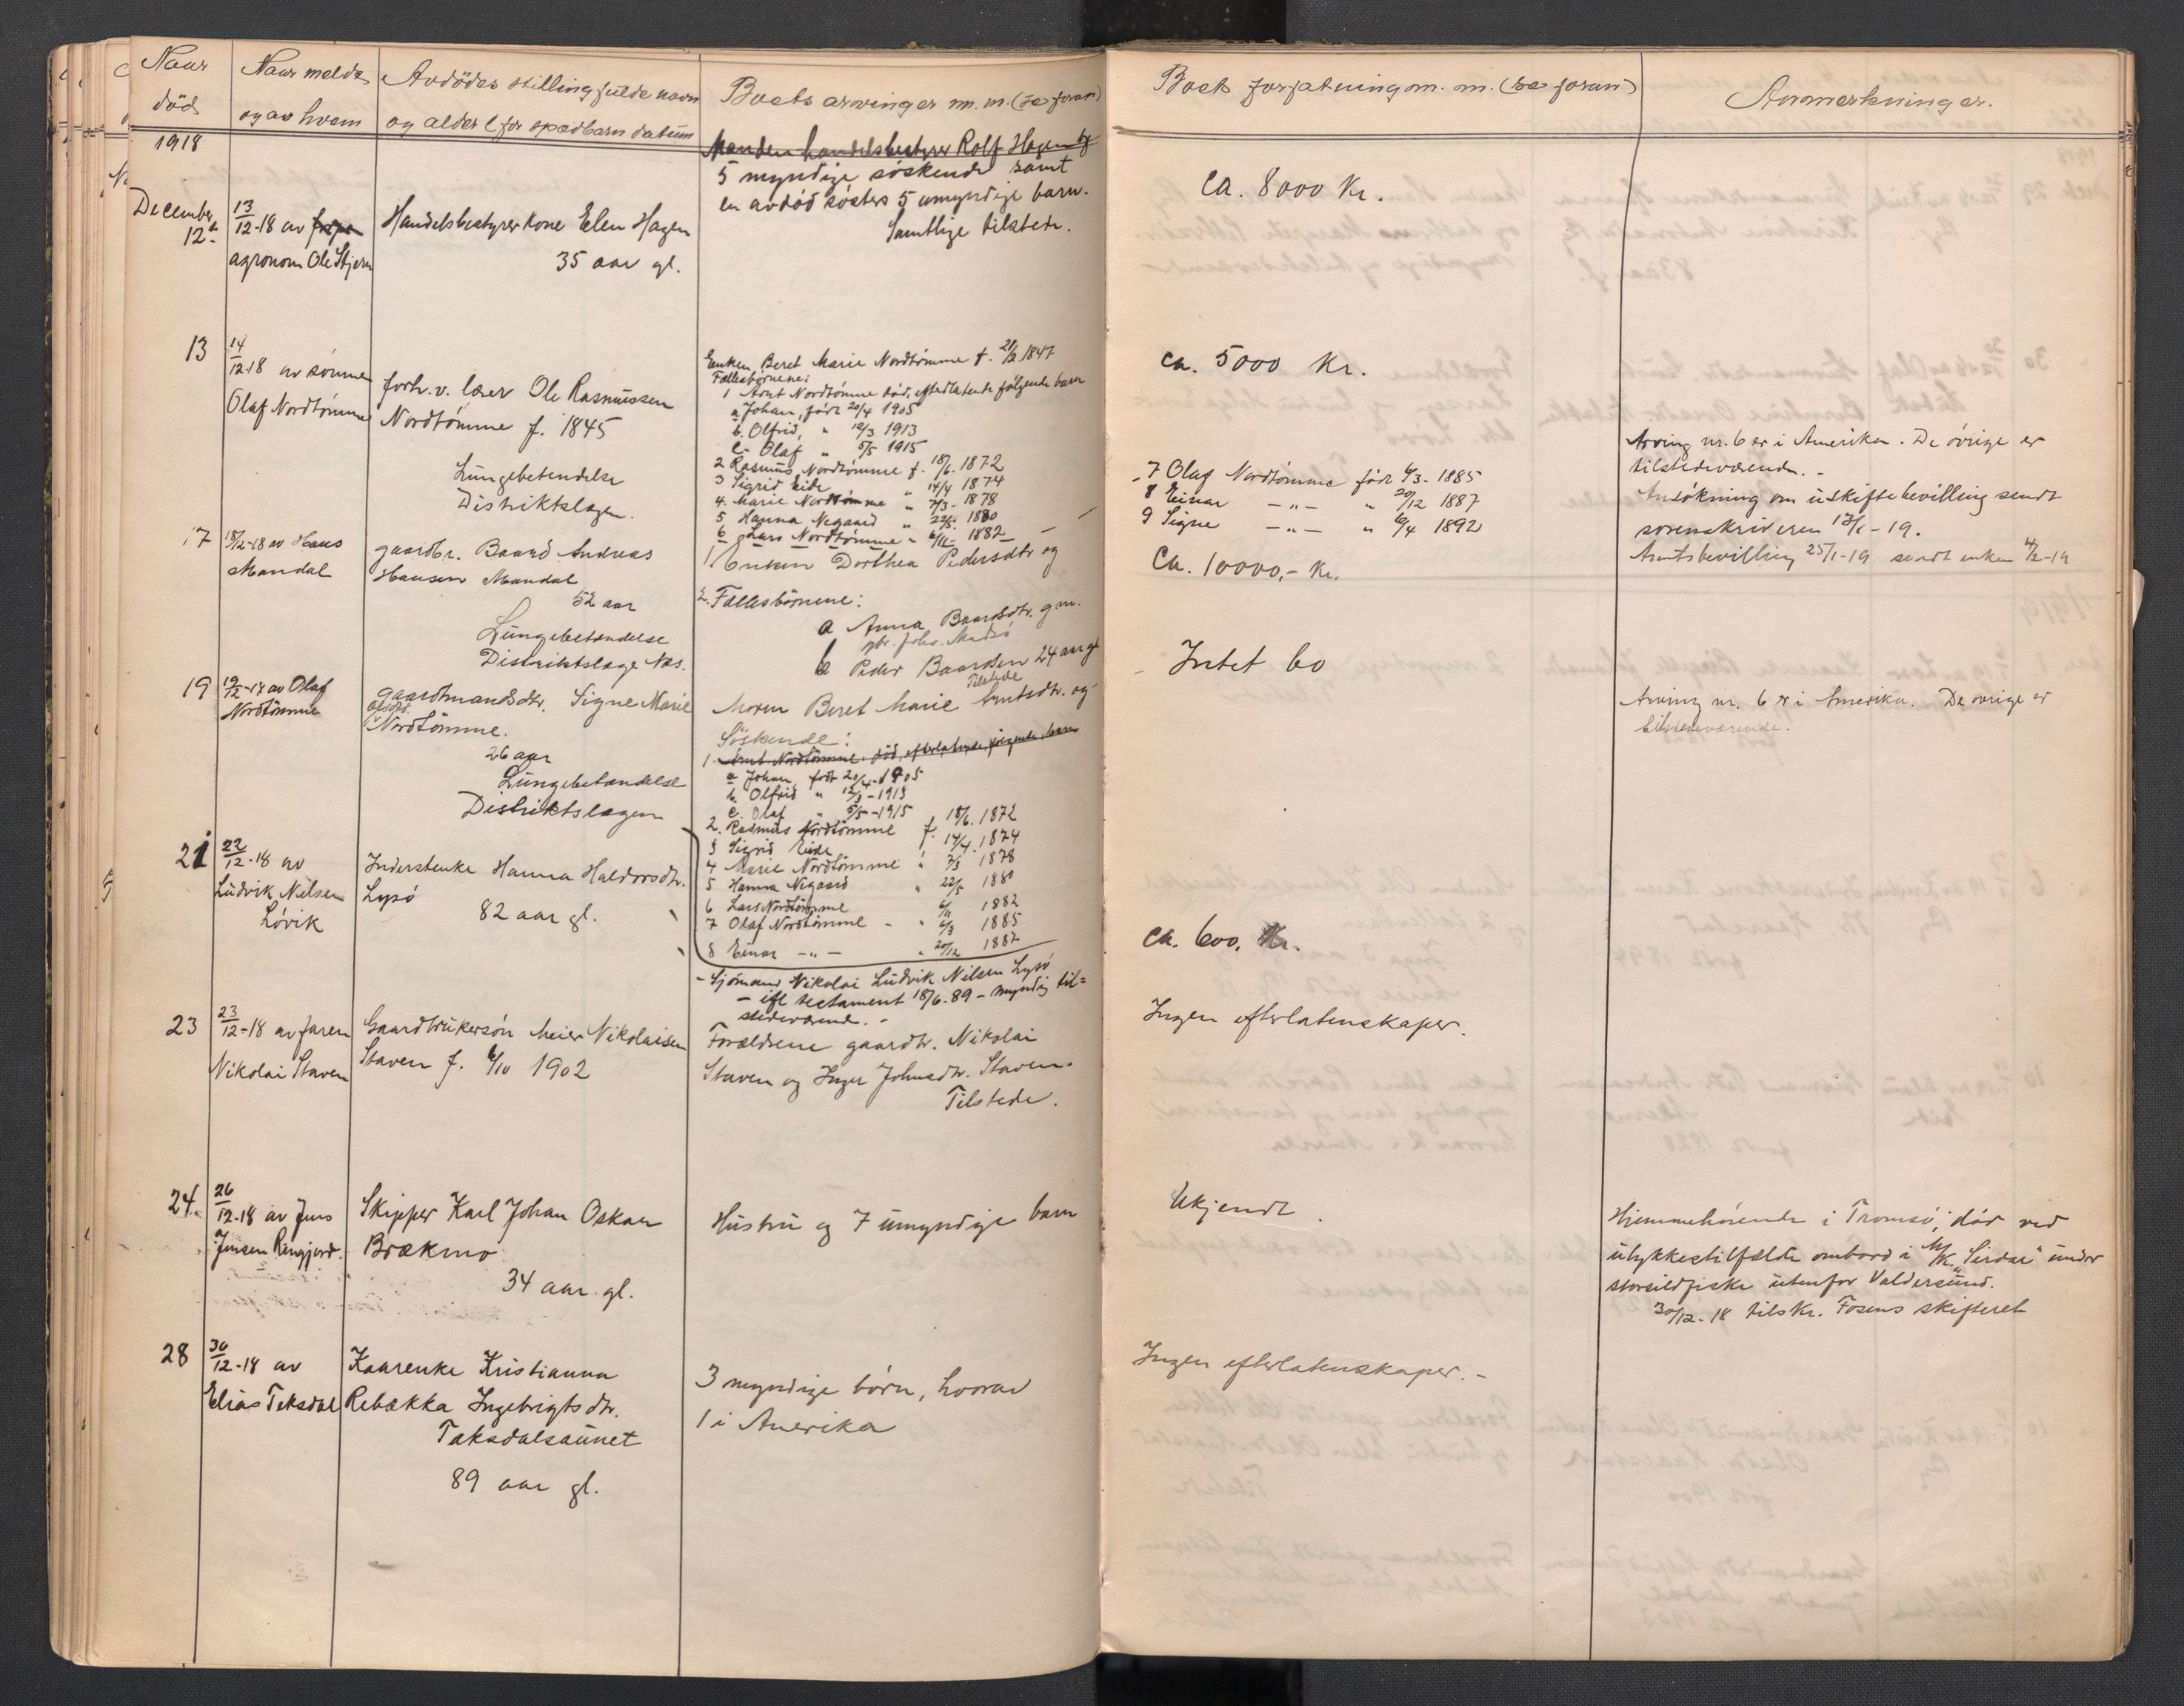 Naar død
Naar meldt og av hvem
Avdödes stilling fulde navn og alder (for spædbarn datum)
Boets arvinger m. m. (se foran)
Boets forfatning m. m. (se foran)
Anmerkninger.
1918
December
12
13/12-18 av
agronom Ole Stjern
Handelsbestyrer kone Elen Hagen
35 aar gl.
Manden handelsbestyrer Rolf Hagen og
5 myndige søskende samt
en avdød søsters 5 umyndige barn.
Samtlige tilstede.
ca. 8000 Kr.
13
14/12-18 av sönnen
Olaf Nordtömme
forh. v. lærer Ole Rasmussen
Nordtömme f. 1845
Lungebetendelse
Distriktslægen.
Enken Beret Marie Nordtömme f. 21/2 1847
Fællesbörnene:
1 Arnt Nordtömme död, efterlatende fölgende barn
a Johan, födt 20/4 1905
b. Olfrid, " 12/3 1913
c. Olaf " 5/5 1915
2 Rasmus Nordtömme f. 18/6. 1872
3 Sigrid Eide " 14/4 1874
4. Marie Nordtömme " 7/3- 1878
5 Hanna Negaard " 22/5. 1880
6 Lars Nordtömme " 6/11- 1882
ca. 5000 Kr.
7 Olaf Nordtömme födt 6/3- 1885
8 Einar -"- " 20/12 1887
9 Signe -"- " 6/4 1892
Arving nr. 6 er i Amerika. De övrige er
tilstedeværende. -
Ansökning om uskiftebevilling sendt
sorenskriveren 13/1-19.
Amtsbevilling 25/1-19 sendt enken 4/2-19
17
18/12-18 av Hans
Mandal
gaardbr. Baard Andreas
Hansen Mandal
52 aar
Lungebetændelse
Distriktslæge Næs.
1 Enken Dorthea Pedersdtr og
2. Fællesbörnene:
a Anna Baardsdtr. gm.
gbr. Johs. Madsö
b Peder Baardsen 24 aar gl
Tilstede
Ca. 10000,- Kr.
19
19/12-18 av Olaf
Nordtömme
gaardmandsdtr. Signe Marie
Nordtömme.
26 aar
Lungebetændelse
Distriktslægen
Moren Beret Marie Arntsdtr. og
Söskende:
1 Arnt Nordtömme, död, efterlatende fölgende barn
a Johan, födt 20/4-1905
b. Olfrid " 12/3-1913
c. Olaf " 5/5-1915
2. Rasmus Nordtömme f. 18/6. 1872
3 Sigrid Eide " 14/4. 1874
4 Marie Nordtömme " 7/3 1878
5 Hanna Negaard " 22/5 1880
6 Lars Nordtömme 6/11 1882
7 Olaf Nordtömme - " 6/3 1885
8 Einar -"- " 20/12 1887
Intet bo
Arving nr. 6 er i Amerika. De övrige er
tilstedeværende.
21
22/12-18 av
Ludvik Nilsen
Lövik
Inderstenke Hanna Haldorsdtr.
Lysö
82 aar gl.
- Sjömand Nikolai Ludvik Nilsen Lysö
- ifl testament 18/6.89 - myndig til=
stedeværende. -
ca. 600. Kr.
23
23/12-18 av faren
Nikolai Staven
Gaardbrukersön Meier Nikolaisen
Staven f. 6/10 1902
Forældrene gaardbr. Nikolai
Staven og Inger Johnsdtr. Staven.
Tilstede.
Ingen efterlatenskaper.
24.
26/12-18 av Jens
Jensen Ringjord.
Skipper Karl Johan Oskar
Brækmo
34 aar gl.
Hustru og 7 umyndige barn
Ukjendt.
Hjemmehörende i Tromsö, död ved
ulykkestilfælde ombord i M/K. "Sirdar" under
storsildfiske utenfor Valdersund.
30/12-18 tilskr. Fosens skifteret
28
30/12-18 av
Elias Teksdal
Kaarenke Kristianna
Rebækka Ingebrigtsdtr.
Taksdalsaunet
89 aar gl.
3 myndige börn, hvorav
1 i Amerika
Ingen efterlatenskaper. -